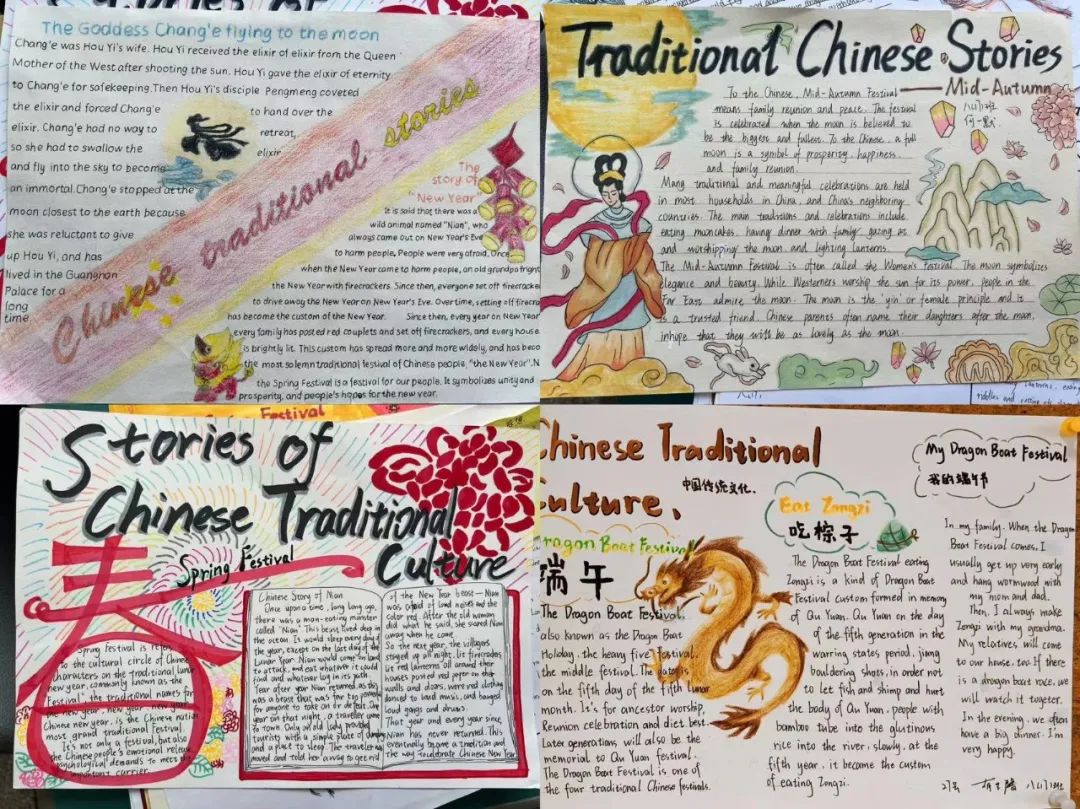 The Goddess Chang'e flying to the moon
Chang'e was Hou Yi's wife. Hou Yi received the elixir of elixir from the Queen
Mother of the West after shooting the sun. Hou Yi gave the elixir of eternity
to Chang'e for safekeeping. Then Hou Yi's disciple Pengmeng coveted
the elixir and forced Chang'e to hand over the
elixir. Chang'e had no way to retreat,
so she had to swallow the elixir
and fly into the sky to become
an immortal. Chang'e stopped at the
moon closest to the earth because
she was reluctant to give
up Hou Yi, and has
lived in the Guangnan
Palace for a
long
time
Chinese traditional stories
The
story of
"New Year"
It is said that there was a
wild animal named "Nian", who
always came out on New Year's Eve
to harm people, People were very afraid. Once
when the New Year came to harm people, an old grandpa fright
the New Year with firecrackers. Since then, everyone set off firecracker
to drive away the New Year on New Year's Eve. Over time, setting off firecra
has become the custom of the New Year. Since then, every year on New Year
every family has posted red couplets and set off firecrackers, and every house
is brightly lit. This custom has spread more and more widely, and has beco
the most solemn traditional festival of Chinese people, "the New Year". N
the Spring Festival is a festival for our people. It symbolizes unity and
prosperity, and people's hopes for the new year.
Traditional Chinese Stories
Mid-Autumn
To the Chinese, Mid-Autumn Festival
means family reunion and peace. The festival
is celebrated when the moon is believed to
be the biggest and fullest. To the Chinese, a full
moon is a symbol of prosperity, happiness,
and family reunion.
Many traditional and meaningful celebrations are held
in most households in China, and China's neighboring
countries. The main traditions and celebrations include
eating mooncakes, having dinner with family, gazing at
and worshipping the moon and lighting lanterns.
The Mid-Autumn Festival is often called the Women's Festival. The moon symbolizes
elegance and beauty. While Westerners worship the sun for its power, people in the
Far East admire the moon. The moon is the 'yin' or female principle and is
a trusted friend. Chinese parents often name their daughters after the moon,
in hope that they will be as lovely as the moon.
Festival
Stories of
Chinese Traditional
Culture
春
Spring Festival
Spring Festival is
to the cultural circle of Chinese
characters on the traditional lunar
new year, commonly known as the
Festival", the traditional names for
the new year, new year, new year
Chinese new year, is the Chinese nation
most grand traditional festival.
It's not only a festival, but also
the Chinese people's emotional release
psychological demands to meet the
important carrier.
Chinese Story of Nian
Once upon a time, long long ago,
there was a man-eating monster
called "Nian". This beast lived deep in
the ocean. It would sleep every day of
the year, except on the last day of the
Lunar Year. Nian would come on land
to attack, and eat whatever it could
find and whatever lay in its path.
Year after year Nian returned, as this
was a beast that was far too powerful
for anyone to take on or defeat. One
year on that night, a traveller came
to town. Only an old lady provided
with a simple plate of dumpling
and a place to sleep. The traveller was
moved and told her a way to get rid
of the New Year beast—Nian
was afraid of loud noises and the
color red. After the old woman
did what he said, she scared Nian
away when he come.
So the next year, the villagers
stayed up all night, lit firecrackers,
lit red lanterns all around their
houses, posted red paper on the
walls and doors, wore red clothing,
danced to loud music, and banged
loud gongs and drums
That year and every year since,
Nian has never returned. This
eventually became a tradition and
the way to celebrate Chinese New Year
Chinese Traditional
Culture.
中国传统文化.
Dragon Boat Festival
端午
The Dragon Boat Festival,
also known as the Dragon Boat
Holiday, the heavy five festival,
the middle festival. The date is
on the fifth day of the fifth lunar
month. It's for ancestor worship,
Reunion celebration and diet best.
Later generations will also be the
memorial to Qu Yuan festival.
The Dragon Boat Festival is one of
the four traditional Chinese festivals.
Eat Zongzi
吃粽子
The Dragon Boat Festival eating
Zongzi is a kind of Dragon Boat
Festival custom formed in memory
of Qu Yuan. Qu Yuan on the day
of the fifth generation in the
warring states period, jiang
bouldering shots, in order not
to let fish and shimp and hurt
the body of Qu Yuan, people with
bamboo tube into the glutinous
rice into the river, slowly, at the
fifth year, it became the custom
of eating Zongzi.
My Dragon Boat Festival
我的端午节
In my family. When the Dragon
Boat Festival comes, I
usually get up very early
and hang wormwood with
my mom and dad.
Then, I always make
Zongzi with my grandma.
My relatives will come
to our house, too. If there
is a dragon boat race, we
will watch it together.
In the evening, we often
have a big dinner. I'm
very happy.